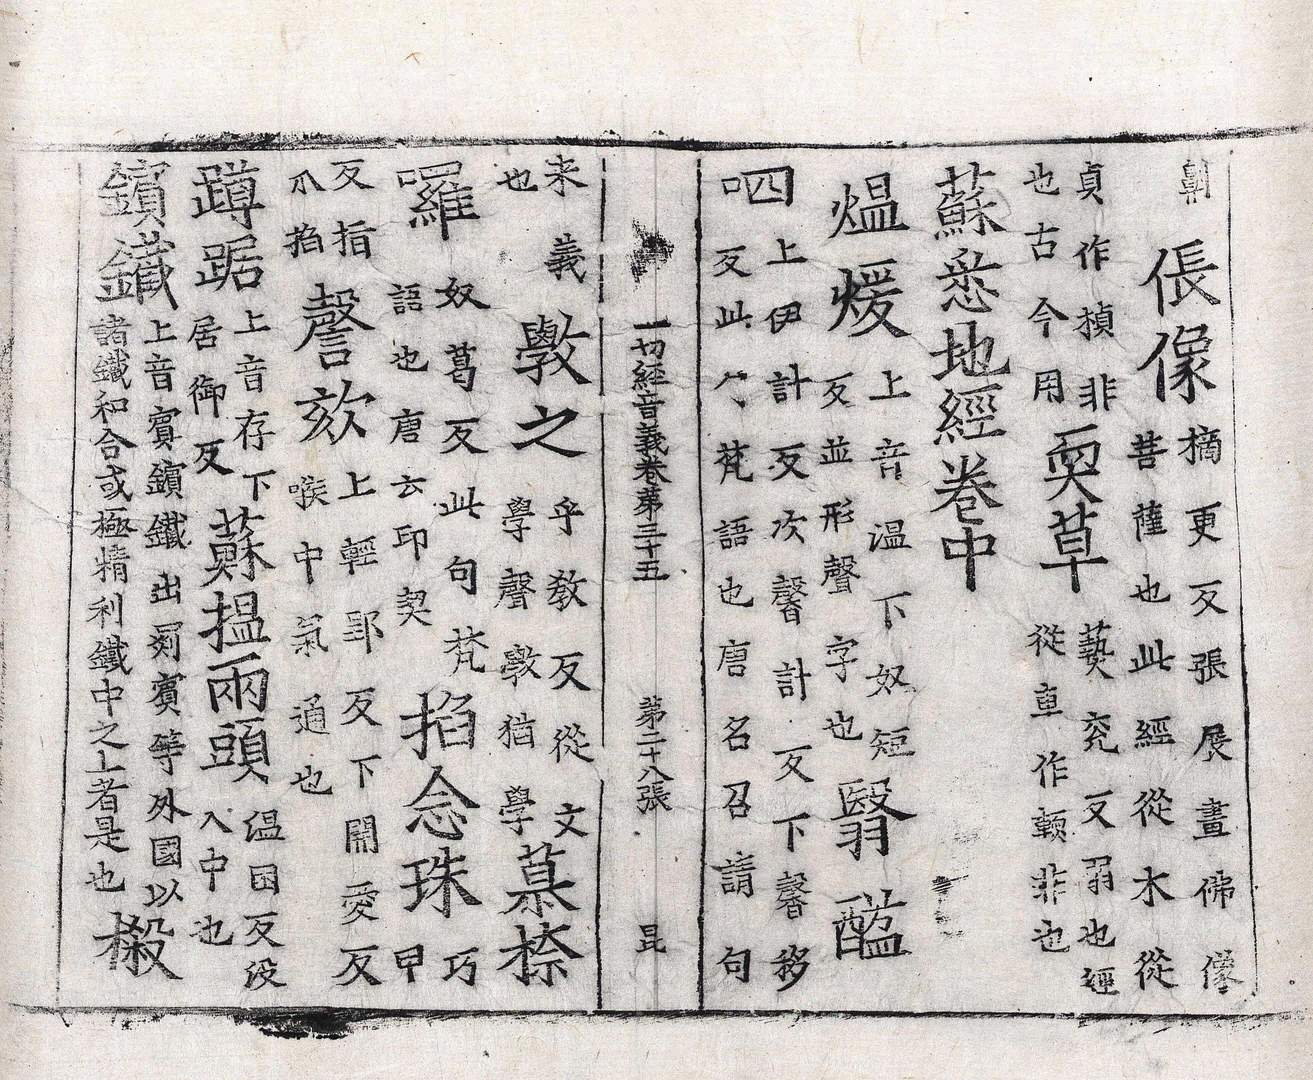 倀像 摘更反張展畫佛像
菩薩也此經從木從
貞作楨非
也古今用 耎草 藝兖反弱也經
從車作輭非也
蘇悉地經卷中
煴煖 上音温下奴短
反並形聲字也 翳䤃
四上伊計反次翳計反下翳移
反此八梵語也唐名召請句
一切經音義卷第三十五 第二十八張 昆
来義
也 斆之 乎教反從文
學聲斆猶學 慕㮏
囉 奴葛反此句梵
語也唐云印契 掐念珠 巧甲
反指
爪掐 謦欬 上輕郢反下開愛反
喉中氣通也
蹲踞 上音存下
居御反 蘇揾兩頭 温困反没
入中也
鑌鐵 上音賓鑌鐵出罽賓等外國以
諸鐵和合或極精利鐵中之上者是也 榝